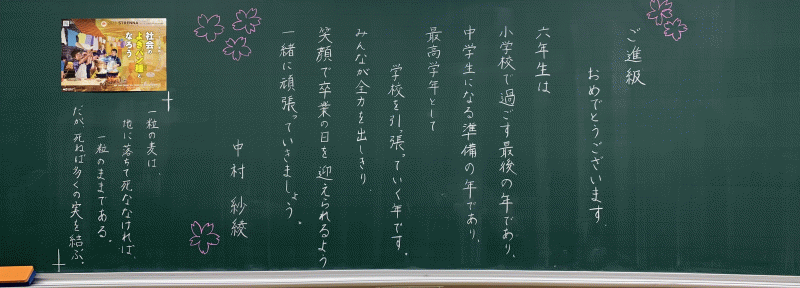 ご進級
おめでとうございます。
六年生は
小学校で過ごす最後の年であり、
中学生になる準備の年であり、
最高学年として
学校を引っ張っていく年です。
みんなが全力を出しきり、
笑顔で卒業の日を迎えられるよう
一緒に頑張っていきましょう。
中村 紗綾
STRENNA
社会の
よきパン種と
なろう
一粒の麦は、
地に落ちて死ななければ、
一粒のままである。
だが、死ねば多くの実を結ぶ。